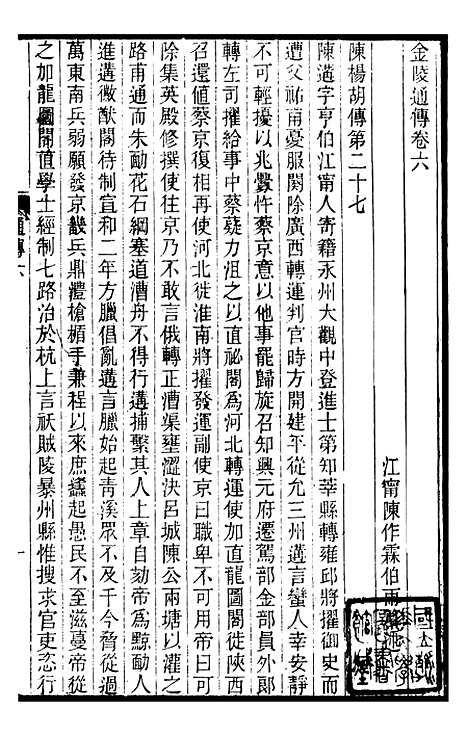 金陵通傳卷六
江甯陳作霖伯雨
陳楊胡傳第二十七
陳遘字亨伯江甯人寄籍永州大觀中登進士第知莘縣轉雍邱將擢御史而
遭父祐甫憂服闋除廣西轉運判官時方開建平從允三州遘言蠻人幸安靜
不可輕擾以兆釁忤蔡京意以他事罷歸旋召知興元府遷駕部金部員外郎
轉左司擢給事中蔡薿力沮之以直祕閣爲河北轉運使加直龍圖閣徙陝西
召還値蔡京復相再使河北徙淮南將擢發運副使京曰職卑不可用帝曰可
除集英殿修撰使往京乃不敢言俄轉正漕渠壅澀決呂城陳公兩塘以灌之
路甫通而朱勔花石綱塞道漕舟不得行遘捕繫其人上章自劾帝爲黥勔人
進遘徽猷閣待制宣和二年方臘倡亂遘言臘始起青溪眾不及千今脅從過
萬東南兵弱願發京畿兵鼎灃槍楯手兼程以來庶蠭起愚民不至滋蔓帝從
之加龍圖閣直學士經制七路治於杭上言祅賊陵暴州縣惟搜求官吏恣行
通傳六
一